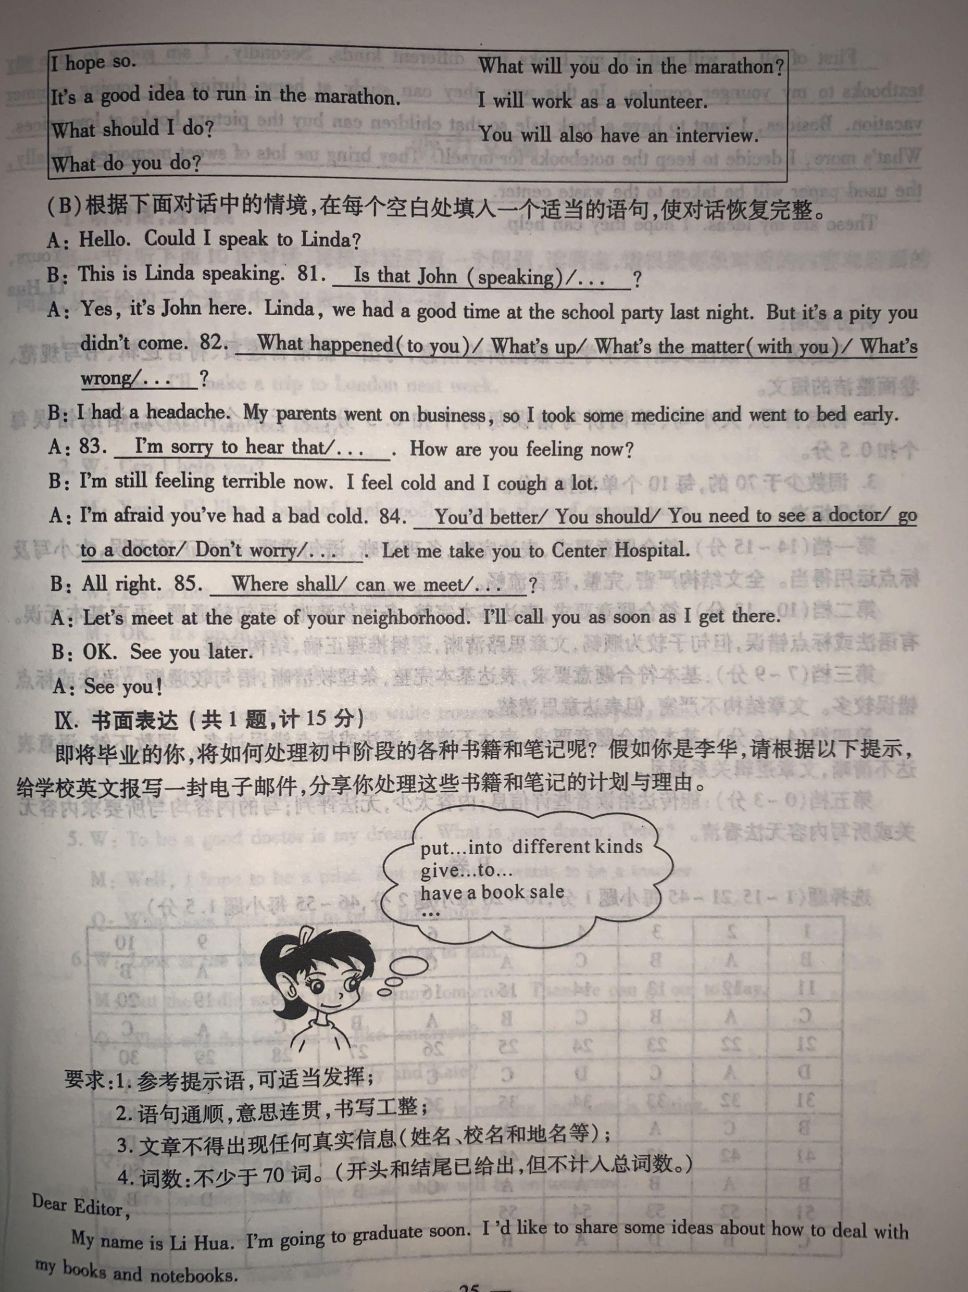 I hope so. What will you do in the marathon?
It's a good idea to run in the marathon. I will work as a volunteer.
What should I do? You will also have an interview.
What do you do?
(B)根据下面对话中的情境,在每个空白处填入一个适当的语句,使对话恢复完整。
A: Hello. Could I speak to Linda?
B: This is Linda speaking. 81. Is that John (speaking)/... ?
A: Yes, it's John here. Linda, we had a good time at the school party last night. But it's a pity you
didn't come. 82. What happened(to you)/ What's up/ What's the matter(with you)/ What's
wrong/... ?
B: I had a headache. My parents went on business, so I took some medicine and went to bed early.
A: 83. I'm sorry to hear that/... . How are you feeling now?
B: I'm still feeling terrible now. I feel cold and I cough a lot.
A: I'm afraid you've had a bad cold. 84. You'd better/ You should/ You need to see a doctor/ go
to a doctor/ Don't worry/... . Let me take you to Center Hospital.
B: All right. 85. Where shall/ can we meet/... ?
A: Let's meet at the gate of your neighborhood. I'll call you as soon as I get there.
B: OK. See you later.
A: See you!
Ⅸ. 书面表达 (共1题,计15分)
即将毕业的你,将如何处理初中阶段的各种书籍和笔记呢? 假如你是李华,请根据以下提示,
给学校英文报写一封电子邮件,分享你处理这些书籍和笔记的计划与理由。
put...into different kinds
give...to...
have a book sale
...
要求:1.参考提示语,可适当发挥;
2.语句通顺,意思连贯,书写工整;
3.文章不得出现任何真实信息(姓名、校名和地名等);
4.词数:不少于70词。(开头和结尾已给出,但不计入总词数。)
Dear Editor,
My name is Li Hua. I'm going to graduate soon. I'd like to share some ideas about how to deal with
my books and notebooks.